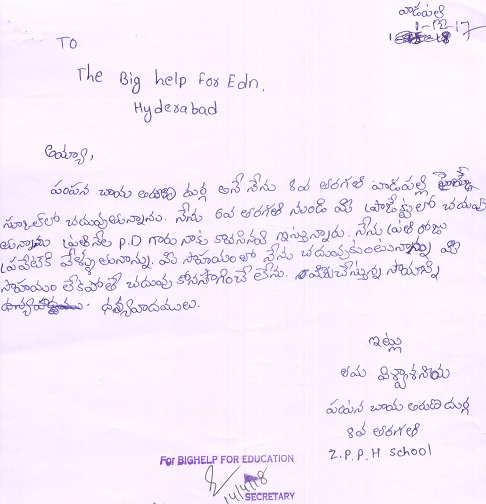 వాడపల్లి
1-12-17
TO
The Big help For Edn,
Hyderabad
అయ్యా,
పంపన చాయ అరుణ దుర్గ అనే నేను 8వ తరగతి వాడపల్లి హైస్కూల్
స్కూల్‌లో చదువుతున్నాను. నేను 6వ తరగతి నుండి మీ ప్రాజెక్టులో చదువు
తున్నాను ప్రతినెల P.D గారు నాకు కావలసినవి ఇస్తున్నారు. నేను ప్రతి రోజు
ప్రవేటుకి వెళ్ళుతున్నాను. మీ సాహయంతో నేను చదువుకుంటున్నాను మీ
సాహయం లేకపోతే చదువు కొనసాగించే లేను. మీరుచేస్తున్న సాయానికి
ధన్యవాదములు.
ఇట్లు
తమ విశ్వాశనీయ
పంపన చాయ అరుణ దుర్గ
8వ తరగతి
Z.P.P.H school
For BIGHELP FOR EDUCATION
14/4/18
SECRETARY